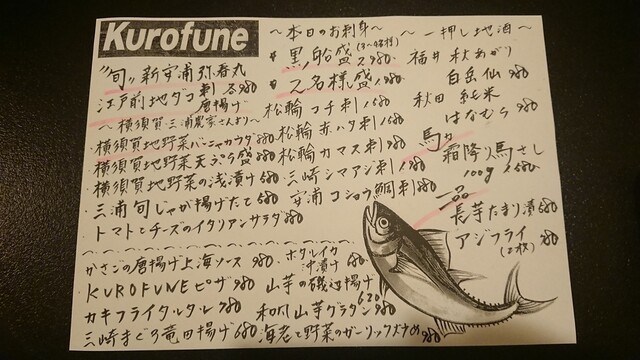 Kurofune
〃旬〃新安浦弥春丸
江戸前地ダコ 刺 各980
唐揚げ
〜横須賀・三浦農家さんより〜
・横須賀地野菜バーニャカウダ 980
横須賀地野菜天ぷら盛 980
・横須賀地野菜の浅漬け 580
・三浦旬じゃが揚げたて 580
・トマトとチーズのイタリアンサラダ 980
〜本日のお刺身〜
黒船盛
2名様盛
松輪 コチ刺
松輪 赤ハタ刺
松輪 カマス刺 980
三崎 シマアジ刺
安浦 コショウ鯛刺
〜一押し地酒〜
福井 秋あがり
白岳仙 980
秋田 純米
はなむら 980
馬力
霜降り馬さし
100g
一品
長芋たまり漬
アジフライ
(2枚)
かさごの唐揚げ上海ソース 980
KUROFUNEピザ 980
カキフライタルタル 780
三崎まぐろ竜田揚げ 680
ホタルイカ
沖漬け 680
山芋の磯辺揚げ
620
和風山芋グラタン 980
海老と野菜のガーリック炒め 980